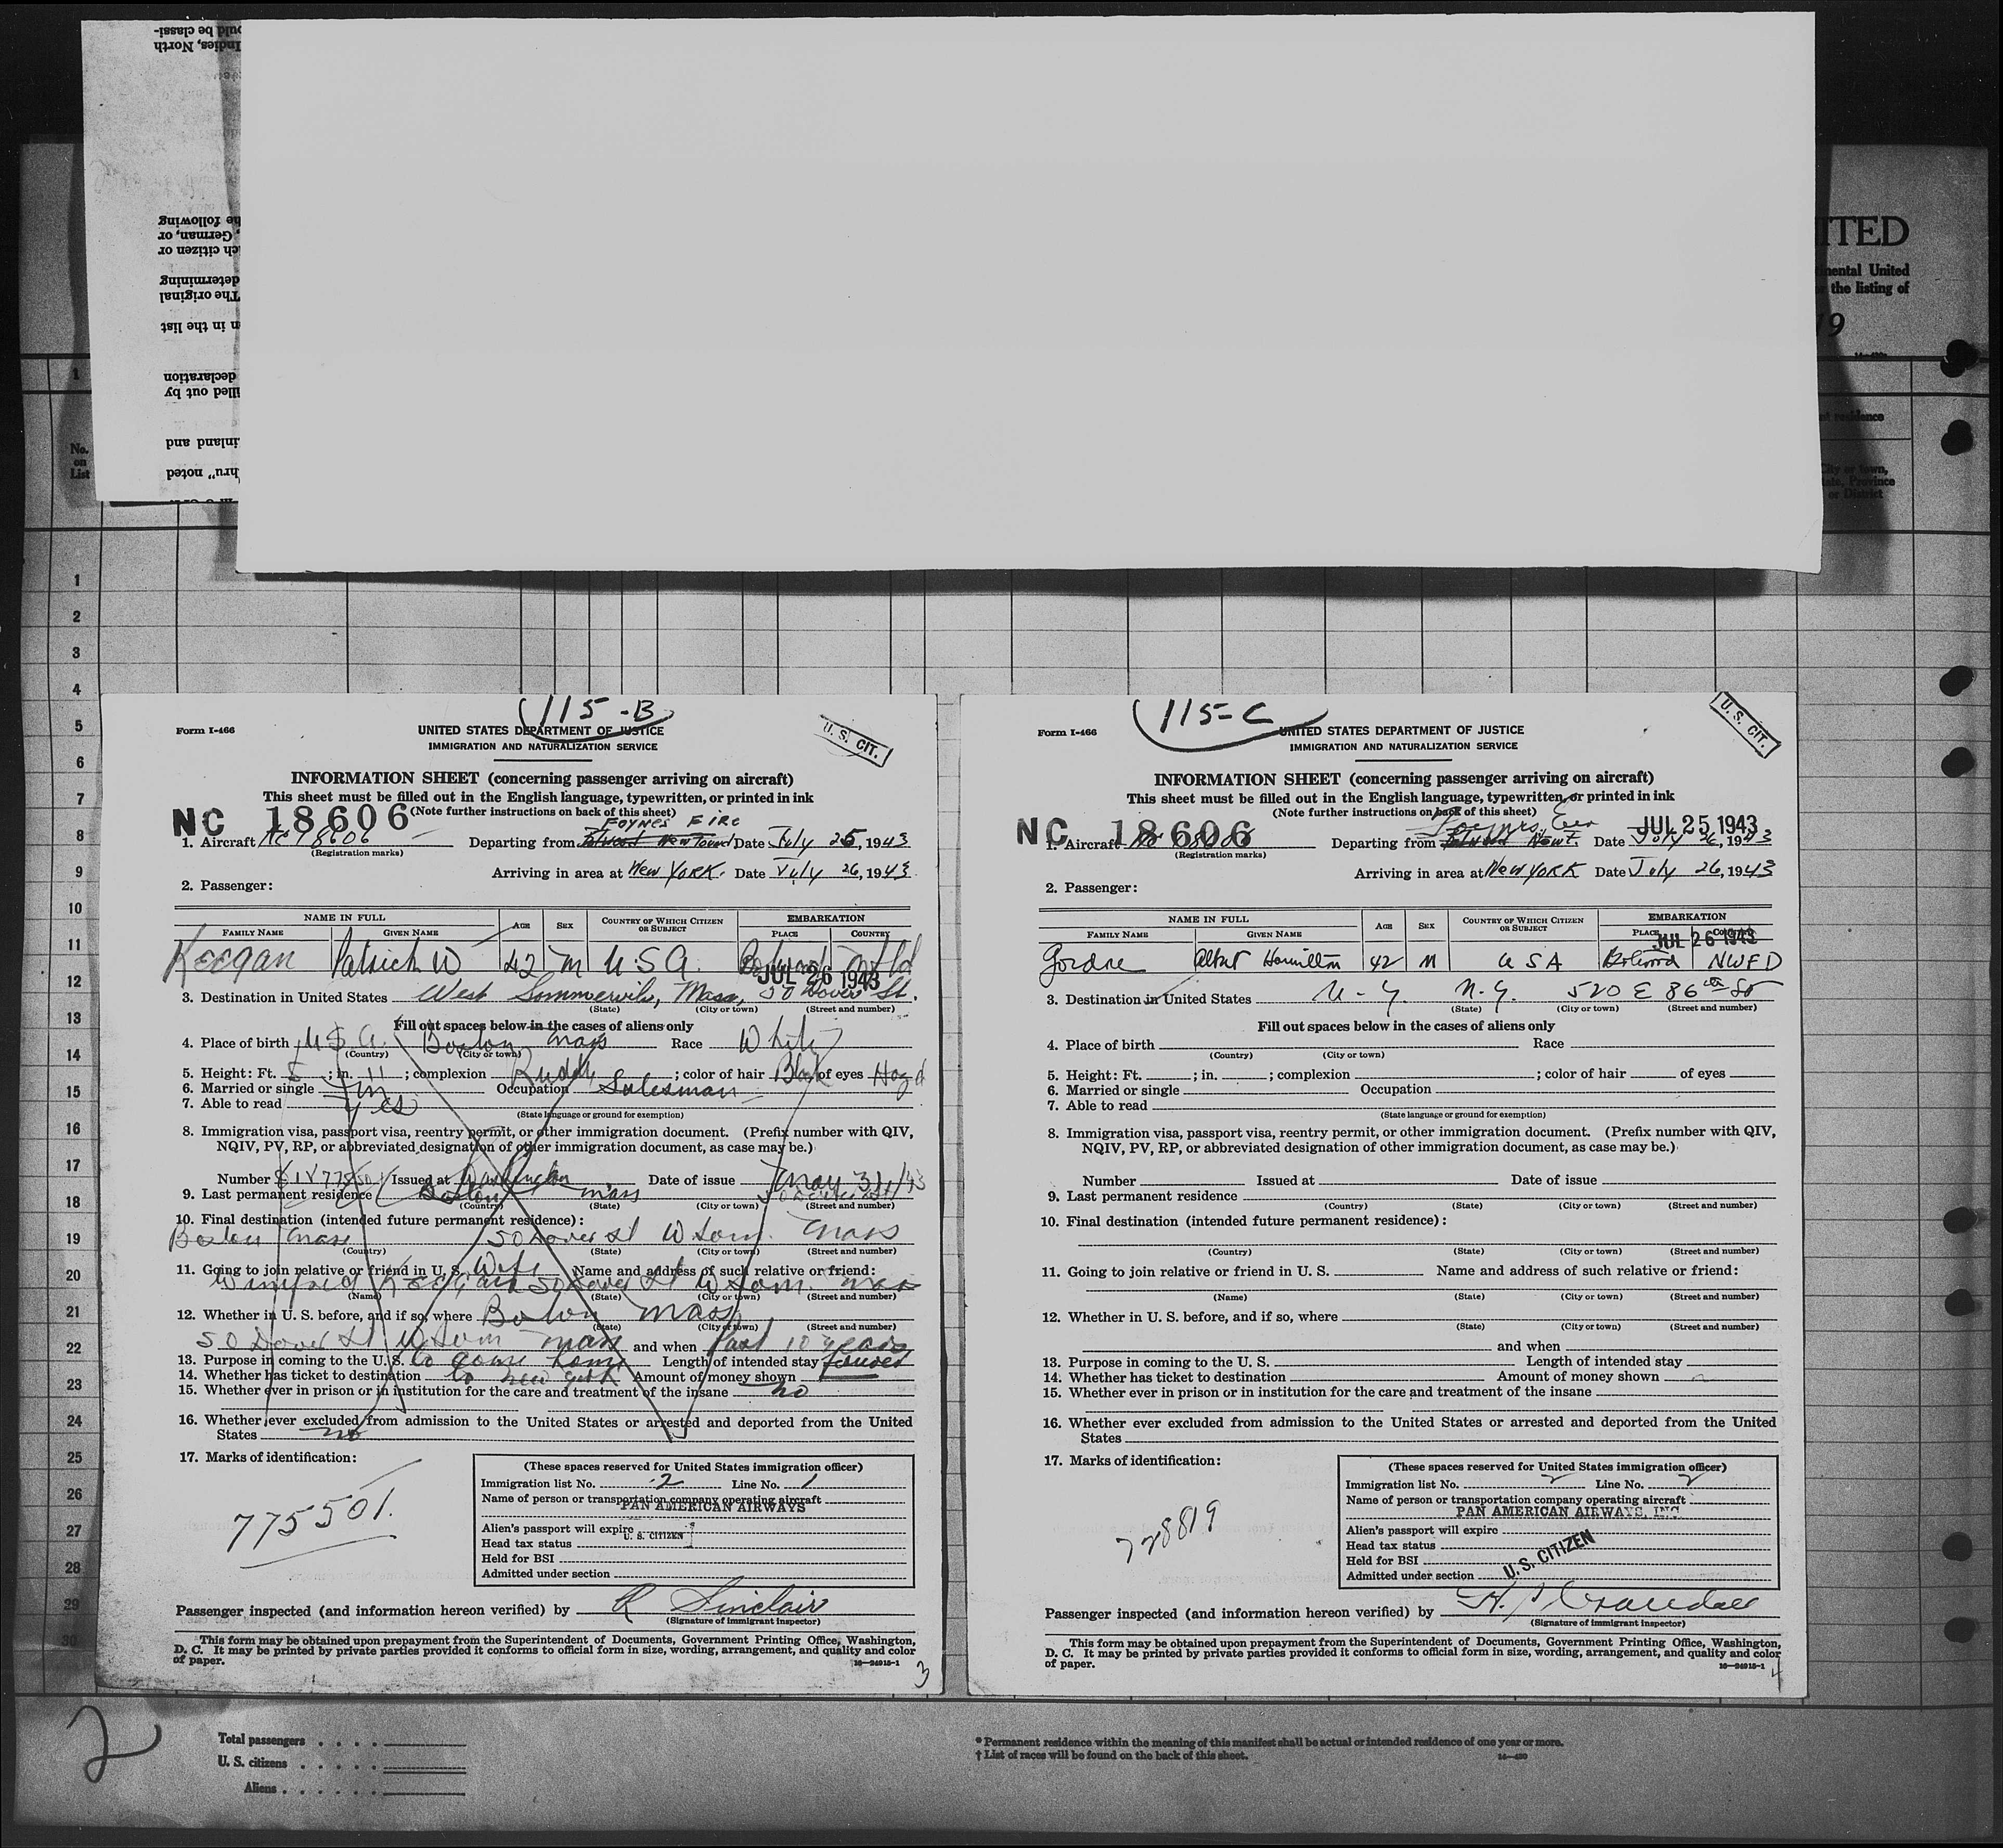 ould be classi-
Indies, North
he following
, German, or
ch citizen or
determining
The original
n in the list
declaration
lled out by
inland and
hru" noted
ITED
nental United
the listing of
19
nt residence
City or town,
State, Province
or District
No.
on
List
1
1
2
3
4
5
6
7
8
9
10
11
12
13
14
15
16
17
18
19
20
21
22
23
24
25
26
27
28
29
30
115-B
Form I-466
UNITED STATES DEPARTMENT OF JUSTICE
IMMIGRATION AND NATURALIZATION SERVICE
U. S. CIT.
INFORMATION SHEET (concerning passenger arriving on aircraft)
This sheet must be filled out in the English language, typewritten, or printed in ink
(Note further instructions on back of this sheet)
NC 18606
FOYNES EIRE
1. Aircraft NC 18606 Departing from Botwood Newfound Date July 25, 1943
(Registration marks)
Arriving in area at New York. Date July 26, 1943
2. Passenger:
NAME IN FULL AGE SEX COUNTRY OF WHICH CITIZEN OR SUBJECT EMBARKATION
FAMILY NAME GIVEN NAME PLACE COUNTRY
Keegan Patrick W 42 M U.S.A. Botwood Nfld
JUL 26 1943
3. Destination in United States West Sommerville, Mass, 50 Dover St.
(State) (City or town) (Street and number)
Fill out spaces below in the cases of aliens only
4. Place of birth U.S.A. Boston Mass Race White
(Country) (City or town)
5. Height: Ft. 5; in. 11; complexion Ruddy; color of hair Black of eyes Hazel
6. Married or single m Occupation Salesman
7. Able to read yes
(State language or ground for exemption)
8. Immigration visa, passport visa, reentry permit, or other immigration document. (Prefix number with QIV,
NQIV, PV, RP, or abbreviated designation of other immigration document, as case may be.)
Number Issued at Washington Date of issue May 31/43
9. Last permanent residence Boston Mass
(Country) (State) (City or town) (Street and number)
10. Final destination (intended future permanent residence):
Boston Mass 50 Dover St W Som. Mass
(Country) (State) (City or town) (Street and number)
11. Going to join relative or friend in U. S. Wife Name and address of such relative or friend:
Winifred KEEGAN 50 Dover St W Som. Mass
(Name) (State) (City or town) (Street and number)
12. Whether in U. S. before, and if so, where Boston Mass
(State) (City or town) (Street and number)
50 Dover St W Som Mass and when Past 10 years
13. Purpose in coming to the U. S. to come home Length of intended stay
14. Whether has ticket to destination to New York Amount of money shown
15. Whether ever in prison or in institution for the care and treatment of the insane no
16. Whether ever excluded from admission to the United States or arrested and deported from the United
States no
17. Marks of identification:
775501.
(These spaces reserved for United States immigration officer)
Immigration list No. 2 Line No. 1
Name of person or transportation company operating aircraft
PAN AMERICAN AIRWAYS
Alien's passport will expire
U. S. CITIZEN
Head tax status
Held for BSI
Admitted under section
Passenger inspected (and information hereon verified) by R Sinclair
(Signature of immigrant inspector)
This form may be obtained upon prepayment from the Superintendent of Documents, Government Printing Office, Washington,
D. C. It may be printed by private parties provided it conforms to official form in size, wording, arrangement, and quality and color
of paper.
16—24915-1
3
115-C
Form I-466
UNITED STATES DEPARTMENT OF JUSTICE
IMMIGRATION AND NATURALIZATION SERVICE
U. S. CIT.
INFORMATION SHEET (concerning passenger arriving on aircraft)
This sheet must be filled out in the English language, typewritten, or printed in ink
(Note further instructions on back of this sheet)
NC 18606
JUL 25 1943
1. Aircraft NC 18606 Departing from Botwood Newf. Date July 26, 1943
(Registration marks)
Arriving in area at New York Date July 26, 1943
2. Passenger:
NAME IN FULL AGE SEX COUNTRY OF WHICH CITIZEN OR SUBJECT EMBARKATION
FAMILY NAME GIVEN NAME PLACE COUNTRY
JUL 26 1943
Albert Hamilton 42 M USA Botwood NWFD
3. Destination in United States N.Y. N.Y. 520 E 86th St
(State) (City or town) (Street and number)
Fill out spaces below in the cases of aliens only
4. Place of birth Race
(Country) (City or town)
5. Height: Ft. ; in. ; complexion ; color of hair of eyes
6. Married or single Occupation
7. Able to read
(State language or ground for exemption)
8. Immigration visa, passport visa, reentry permit, or other immigration document. (Prefix number with QIV,
NQIV, PV, RP, or abbreviated designation of other immigration document, as case may be.)
Number Issued at Date of issue
9. Last permanent residence
(Country) (State) (City or town) (Street and number)
10. Final destination (intended future permanent residence):
(Country) (State) (City or town) (Street and number)
11. Going to join relative or friend in U. S. Name and address of such relative or friend:
(Name) (State) (City or town) (Street and number)
12. Whether in U. S. before, and if so, where
(State) (City or town) (Street and number)
and when
13. Purpose in coming to the U. S. Length of intended stay
14. Whether has ticket to destination Amount of money shown
15. Whether ever in prison or in institution for the care and treatment of the insane
16. Whether ever excluded from admission to the United States or arrested and deported from the United
States
17. Marks of identification:
728819
(These spaces reserved for United States immigration officer)
Immigration list No. 2 Line No. 2
Name of person or transportation company operating aircraft
PAN AMERICAN AIRWAYS, INC.
Alien's passport will expire
Head tax status
Held for BSI
U. S. CITIZEN
Admitted under section
Passenger inspected (and information hereon verified) by
(Signature of immigrant inspector)
This form may be obtained upon prepayment from the Superintendent of Documents, Government Printing Office, Washington,
D. C. It may be printed by private parties provided it conforms to official form in size, wording, arrangement, and quality and color
of paper.
16—24915-1
4
2
Total passengers
U. S. citizens
Aliens
* Permanent residence within the meaning of this manifest shall be actual or intended residence of one year or more.
† List of races will be found on the back of this sheet.